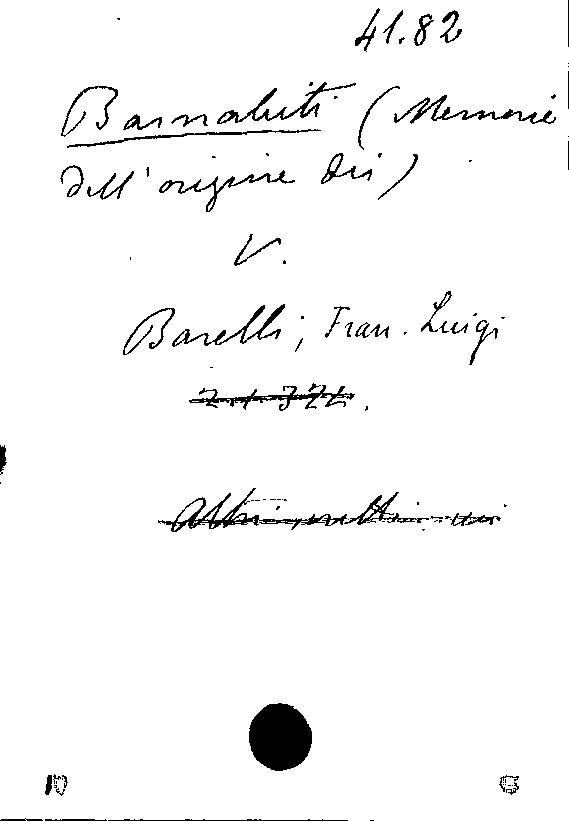 41.82
Barnabiti (Memorie
dell'origine dei)
V.
Barelli, Fran. Luigi